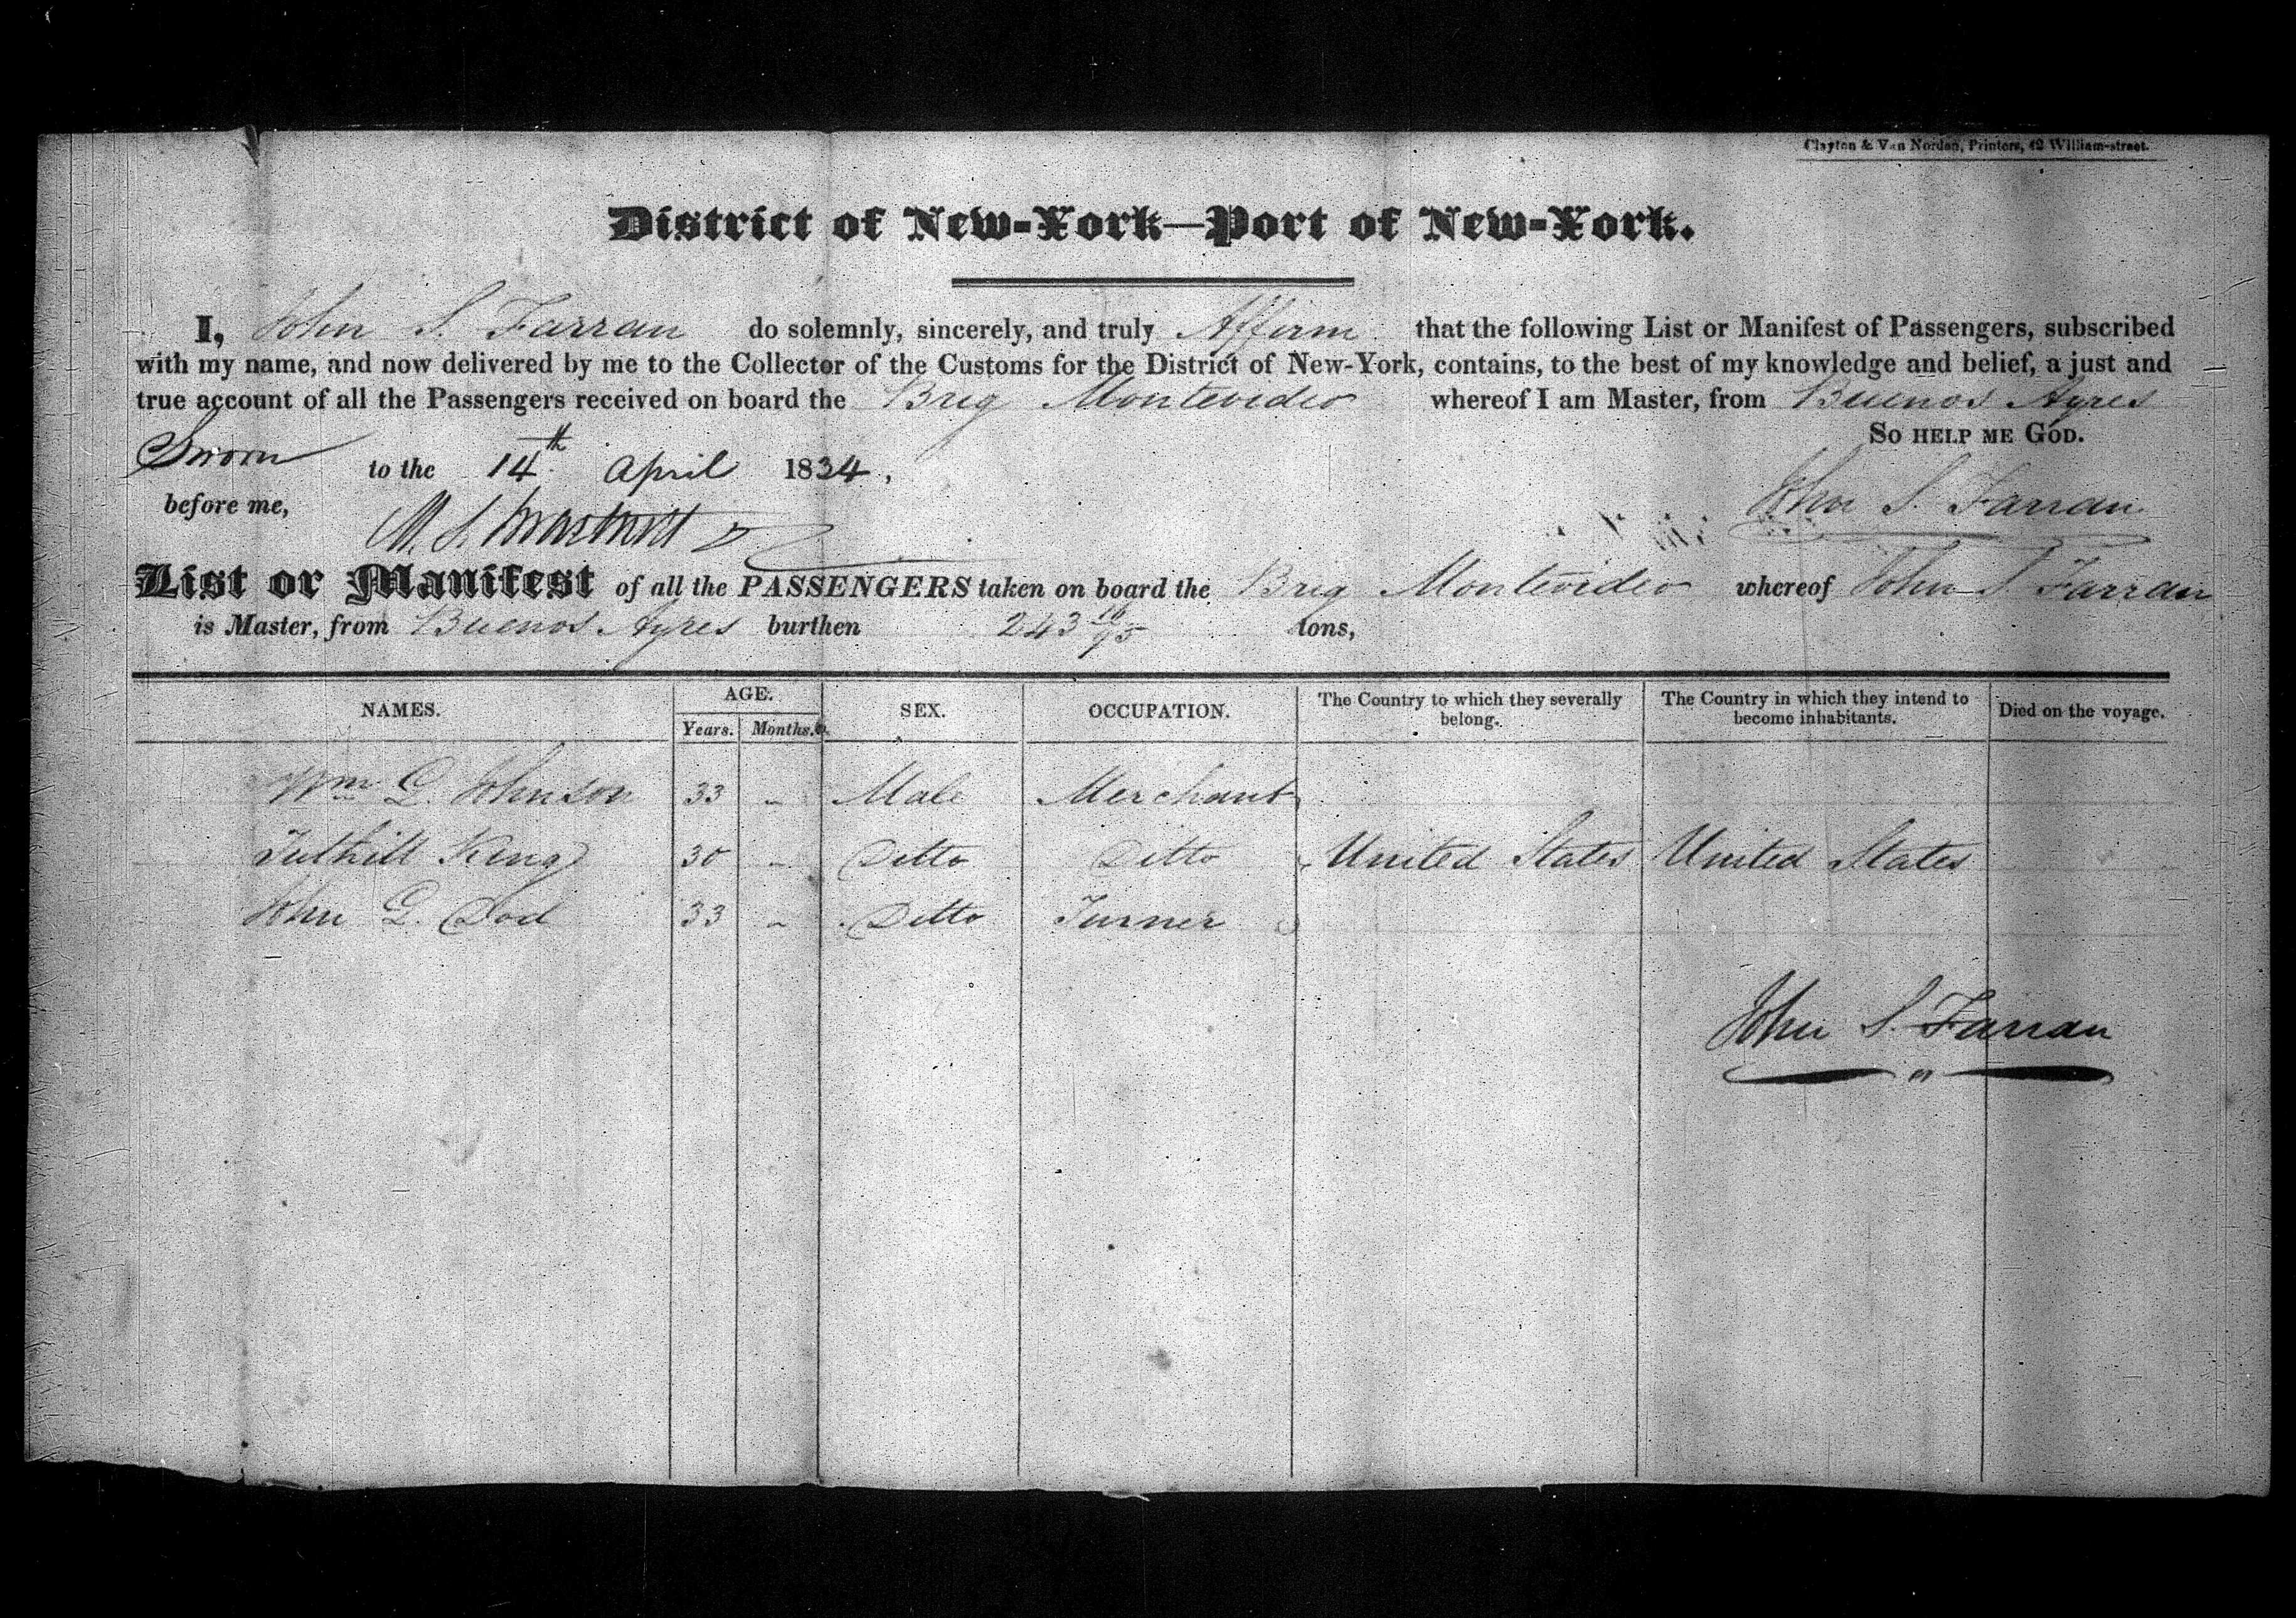 Clayton & Van Norden, Printers, 42 William-street.
District of New-York—Port of New-York.
I, John S. Farran do solemnly, sincerely, and truly Affirm that the following List or Manifest of Passengers, subscribed
with my name, and now delivered by me to the Collector of the Customs for the District of New-York, contains, to the best of my knowledge and belief, a just and
true account of all the Passengers received on board the Brig Montevideo whereof I am Master, from Buenos Ayres
SO HELP ME GOD.
Sworn to the 14th April 1834.
before me, John S. Farran
M. S.
List or Manifest of all the PASSENGERS taken on board the Brig Montevideo whereof John S. Farran
is Master, from Buenos Ayres burthen 243 16/95 tons,
NAMES. AGE. SEX. OCCUPATION. The Country to which they severally belong. The Country in which they intend to become inhabitants. Died on the voyage.
Years. Months.
Wm G. Johnson 33 - Male Merchant
Tuthill King 30 - Ditto Ditto United States United States
John G. Dod 33 - Ditto Turner
John S. Farran